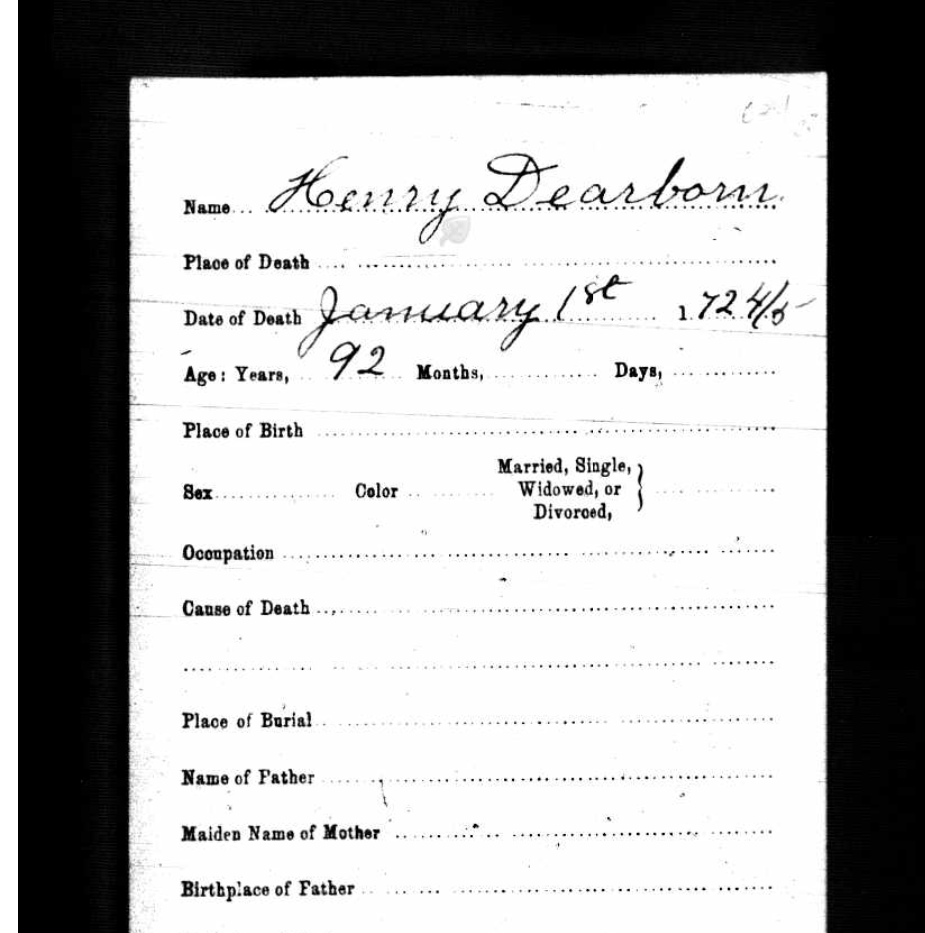 Name Henry Dearborn
Place of Death
Date of Death January 1st 1724/5
Age: Years, 92 Months, Days,
Place of Birth
Sex Color Married, Single, Widowed, or Divorced,
Occupation
Cause of Death
Place of Burial
Name of Father
Maiden Name of Mother
Birthplace of Father